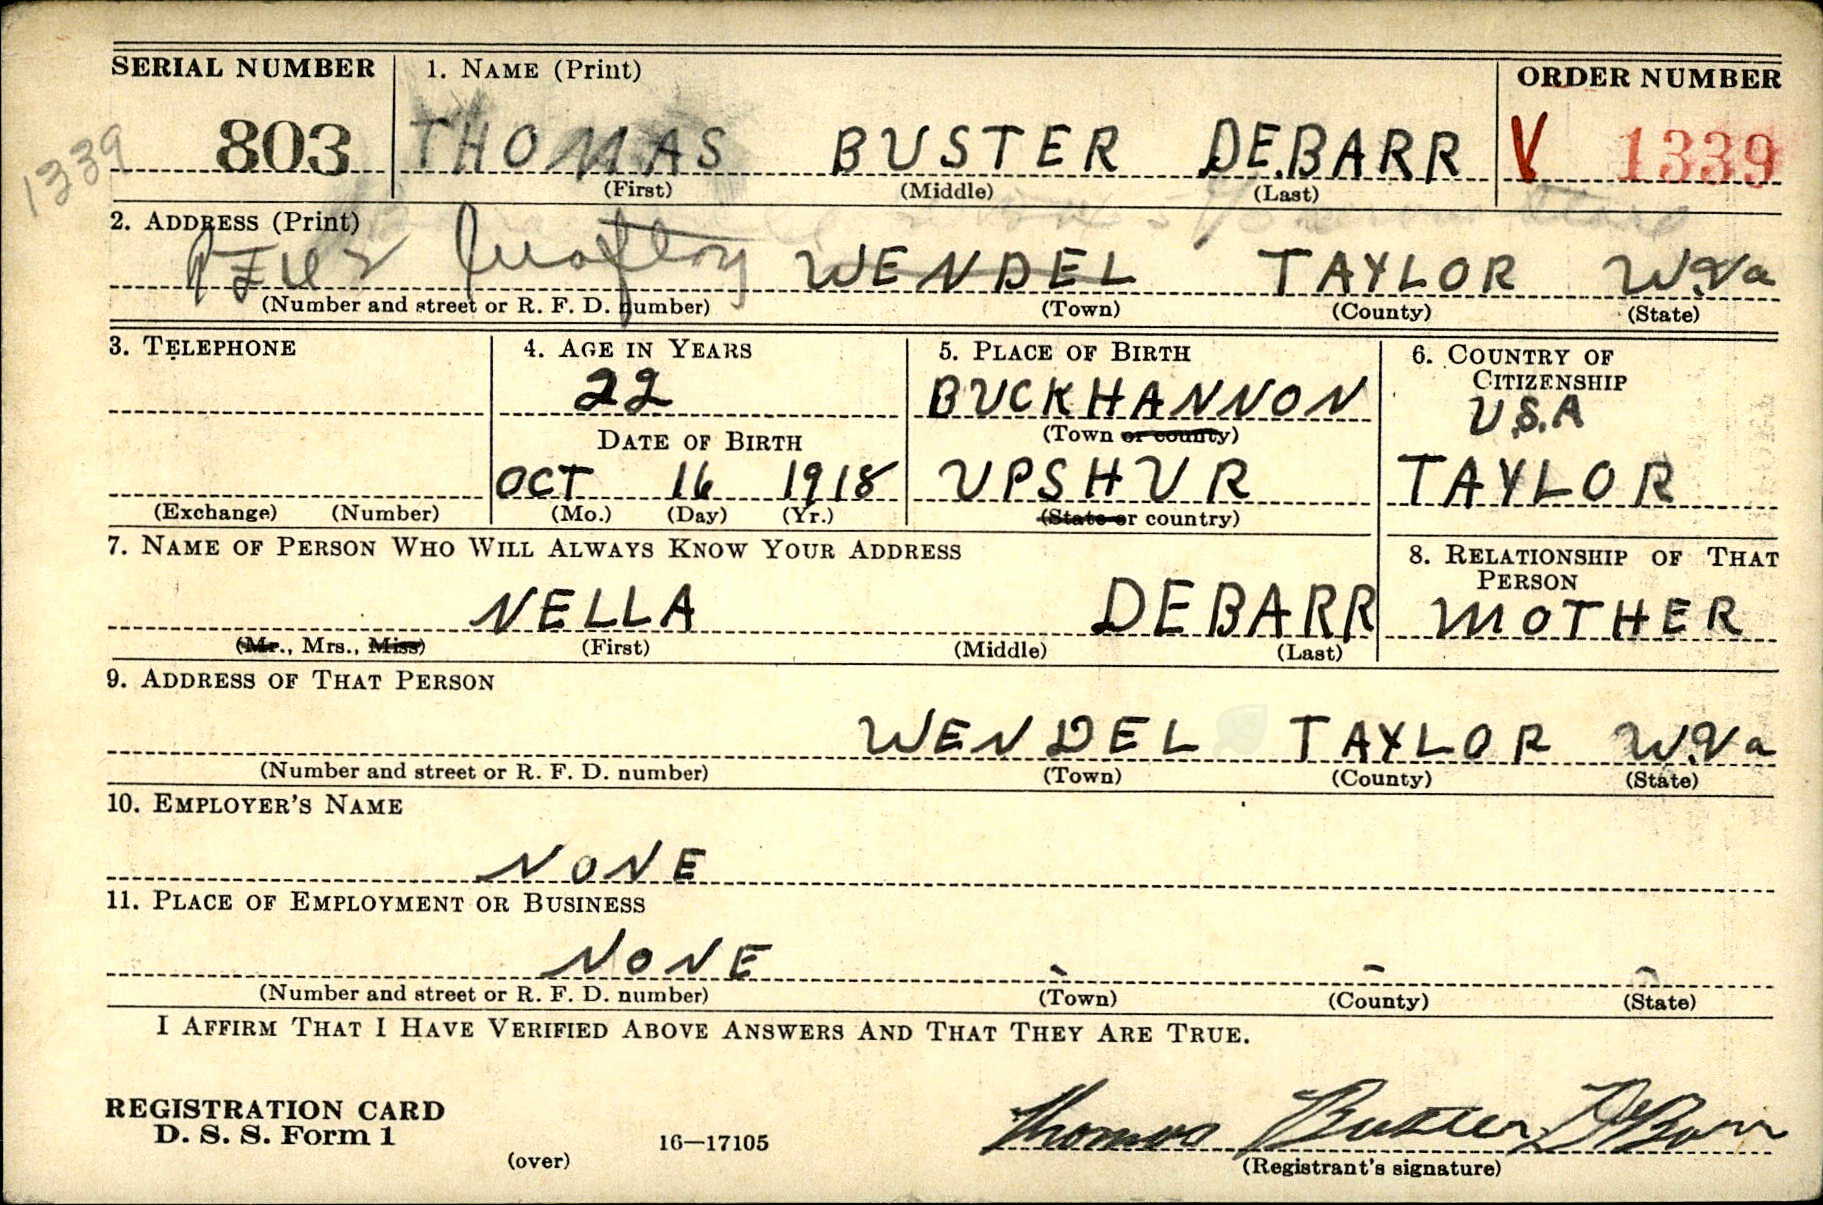 SERIAL NUMBER 1. NAME (Print) ORDER NUMBER
1339 803 THOMAS BUSTER DEBARR V 1339
(First) (Middle) (Last)
2. ADDRESS (Print)
Grafton WENDEL TAYLOR W.Va
(Number and street or R. F. D. number) (Town) (County) (State)
3. TELEPHONE 4. AGE IN YEARS 5. PLACE OF BIRTH 6. COUNTRY OF
CITIZENSHIP
22 BUCKHANNON U.S.A
(Town or county)
DATE OF BIRTH
OCT 16 1918 UPSHUR TAYLOR
(Exchange) (Number) (Mo.) (Day) (Yr.) (State or country)
7. NAME OF PERSON WHO WILL ALWAYS KNOW YOUR ADDRESS 8. RELATIONSHIP OF THAT
PERSON
NELLA DEBARR MOTHER
(Mr., Mrs., Miss) (First) (Middle) (Last)
9. ADDRESS OF THAT PERSON
WENDEL TAYLOR W.Va
(Number and street or R. F. D. number) (Town) (County) (State)
10. EMPLOYER'S NAME
NONE
11. PLACE OF EMPLOYMENT OR BUSINESS
NONE - - -
(Number and street or R. F. D. number) (Town) (County) (State)
I AFFIRM THAT I HAVE VERIFIED ABOVE ANSWERS AND THAT THEY ARE TRUE.
REGISTRATION CARD
D. S. S. Form 1 16—17105 Thomas Buster DeBarr
(over) (Registrant's signature)